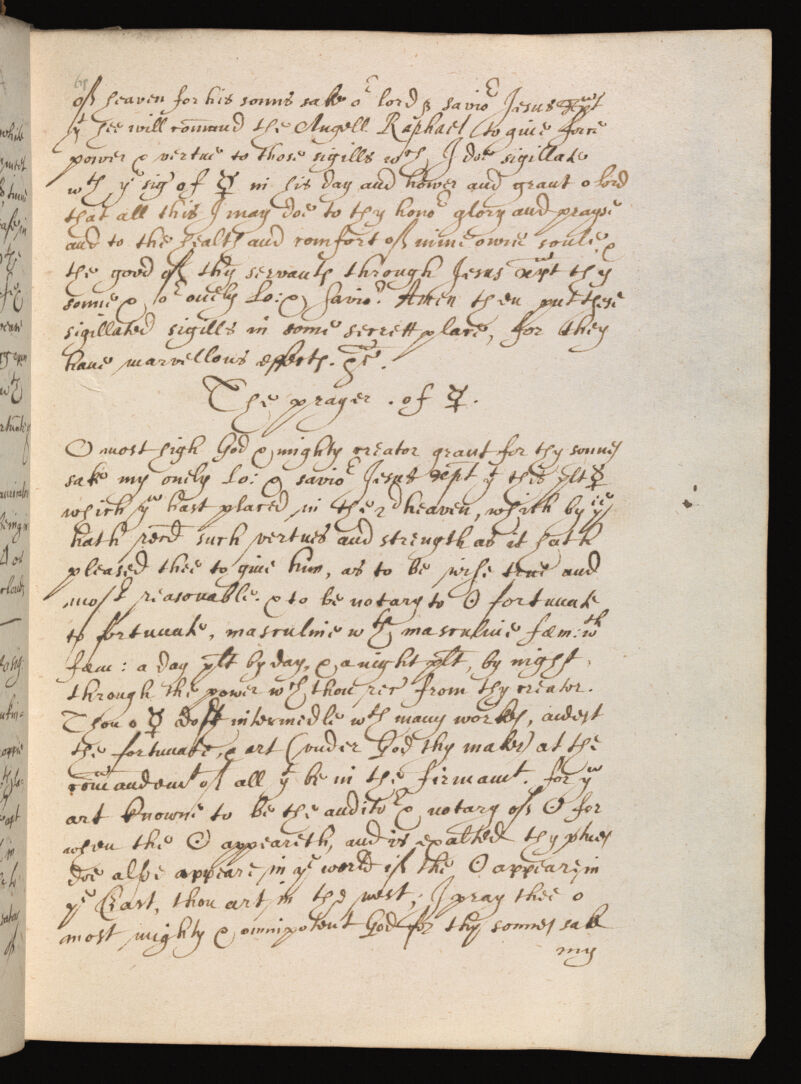 of heaven for his sonns sake or lord & savior Jesus xpt
yt hee will comand the Angell Raphael to give force
power & vertue to those sigills wch I doe sigillate
wth ye sig of ☿ in his day and hower and grant o lord
that all this I may doe to thy honor glory and prayse
and to the health and comfort of mine owne soule &
the good of thy servants through Jesus xpt thy
sonne & or onely Lo: & savior. Amen then put these
sigillated sigills in some secrett place, for they
have marvellous effects. &c.
The prayer . of ☿ .
O most high God & mighty creator grant for thy sonnes
sake my onely Lo: & savior Jesus xpt yt this plt ☿
which yu hast placed in the 2d heaven, which by ye
hath recd such vertues and strength as it hath
pleased thee to give him, as to be wise true and
most reasonable. & to be notary to ☉ fortunate
to fortunate, masculine wth masculine fæm: wth
fæm: a day plt by day, & a night plt, by night,
through the power wch thou rec from thy creator.
Thou o ☿ dost intermedle wth many workes, aidest
the fortunate, & art (under God thy maker) at the
comandemt of all yt be in the firmamt. for yu
art knowne to be the auditor & notary of ☉ for
when the ☉ appeareth, and is exalted thy
doe also appeare in ye world if the ☉ appeare in
ye East, thou art in the west; I pray thee o
most mighty & omnipotent God for thy sonnes sake
my